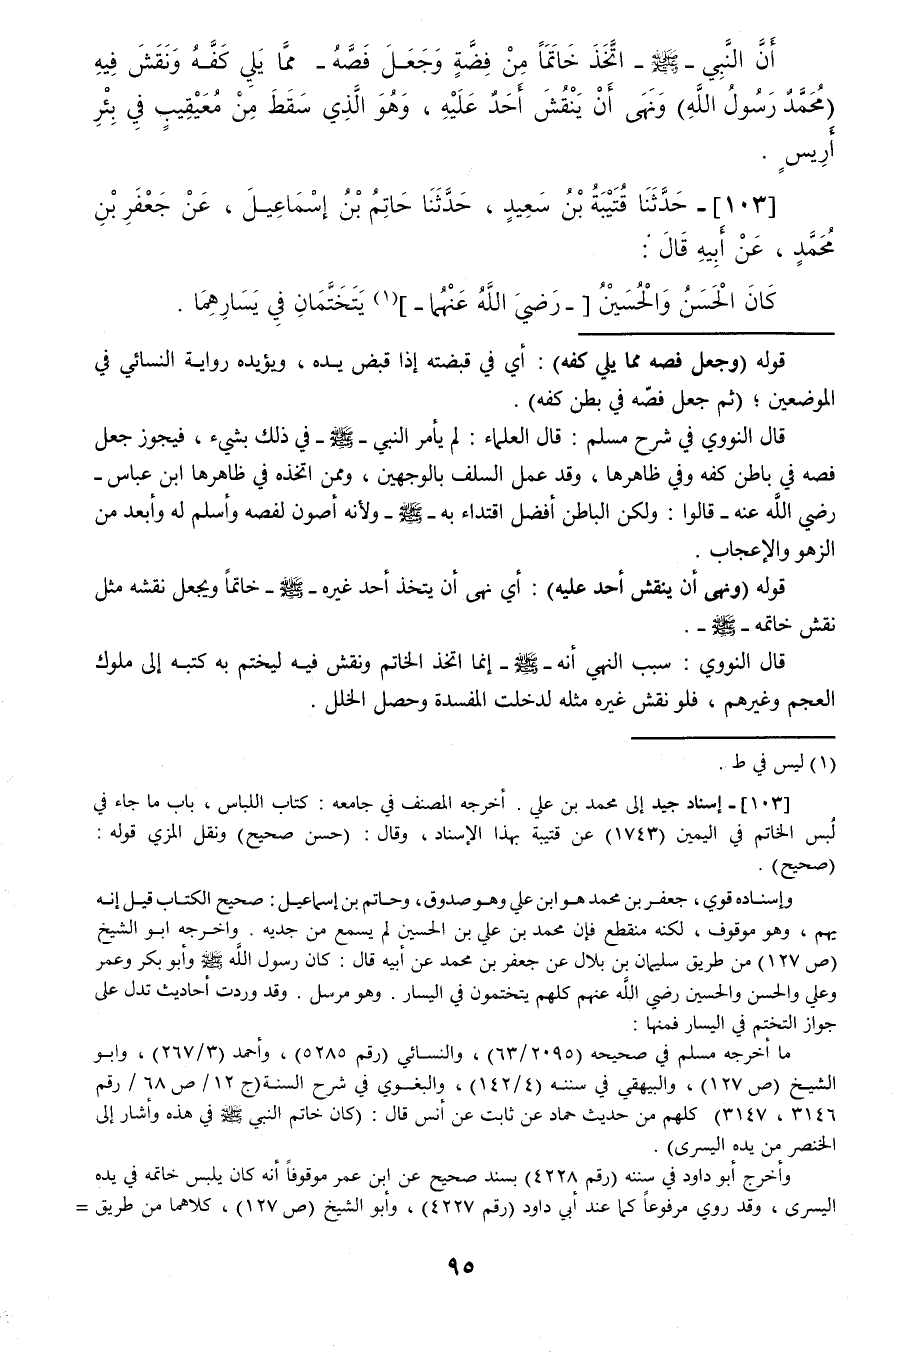 أَنَّ النَّبِي ـ ﷺ ـ اتَّخَذَ خَاتَمَاً مِنْ فِضَّةٍ وَجَعَـلَ فَصَّهُ ـ مِمَّا يَلِي كَفَّـهُ وَنَقَشَ فِيهِ
(مُحَمَّدٌ رَسُولُ اللَّهِ) وَنَهَى أَنْ يَنْقُشَ أَحَدٌ عَلَيْهِ ، وَهُوَ الَّذِي سَقَطَ مِنْ مُعَيْقِيبٍ فِي بِئْرِ
أَرِيسٍ .
[١٠٣] ـ حَدَّثَنَا قُتَيْبَةُ بْنُ سَعِيدٍ ، حَدَّثَنَا حَاتِمُ بْنُ إِسْمَاعِيـلَ ، عَنْ جَعْفَرِ بْنِ
مُحَمَّدٍ ، عَنْ أَبِيهِ قَالَ :
كَانَ الْحَسَنُ وَالْحُسَيْنُ [ ـ رَضِيَ اللَّهُ عَنْهُما ـ ](١) يَتَخَتَّمَانِ فِي يَسَارِهِمَا .
قوله (وجعل فصه مما يلي كفه) : أي في قبضته إذا قبض يـده ، ويؤيده روايـة النسائي في
الموضعين ؛ (ثم جعل فصّه في بطن كفه) .
قال النووي في شرح مسلم : قال العلماء : لم يأمر النبي ـ ﷺ ـ في ذلك بشيء ، فيجوز جعل
فصه في باطن كفه وفي ظاهرها ، وقد عمل السلف بالوجهين ، وممن اتخذه في ظاهرها ابن عباس ـ
رضي اللَّه عنه ـ قالوا : ولكن الباطن أفضل اقتداء به ـ ﷺ ـ ولأنه أصون لفصه وأسلم له وأبعد من
الزهو والإعجاب .
قوله (ونهى أن ينقش أحد عليه) : أي نهى أن يتخذ أحد غيره ـ ﷺ ـ خاتماً ويجعل نقشه مثل
نقش خاتمه ـ ﷺ ـ .
قال النووي : سبب النهي أنه ـ ﷺ ـ إنما اتخذ الخاتم ونقش فيـه ليختم به كتبـه إلى ملوك
العجم وغيرهم ، فلو نقش غيره مثله لدخلت المفسدة وحصل الخلل .
(١) ليس في ط .
[١٠٣] ـ إسناد جيد إلى محمد بن علي . أخرجه المصنف في جامعه : كتاب اللباس ، باب ما جاء في
لُبس الخاتم في اليمين (١٧٤٣) عن قتيبة بهذا الإسناد ، وقال : (حسن صحيح) ونقل المزي قوله :
(صحيح) .
وإسنـاده قوي ، جعفـر بن محمد هـو ابن علي وهـو صدوق ، وحـاتم بن إسماعيـل : صحيح الكتـاب قيـل إنـه
يهم ، وهو موقوف ، لكنه منقطع فإن محمد بن علي بن الحسين لم يسمع من جديه . واخـرجه ابـو الشيخ
(ص ١٢٧) من طريق سليمان بن بلال عن جعفر بن محمد عن أبيه قال : كان رسول اللَّه ﷺ وأبو بكر وعمر
وعلي والحسن والحسين رضي اللَّه عنهم كلهم يتختمون في اليسار . وهو مرسل . وقد وردت أحاديث تدل على
جواز التختم في اليسار فمنها :
ما أخرجه مسلم في صحيحه (٦٣/٢٠٩٥) ، والنسائي (رقم ٥٢٨٥) ، وأحمد (٢٦٧/٣) ، وابـو
الشيـخ (ص ١٢٧) ، والبيهقي في سننـه (١٤٢/٤) ، والبغـوي في شرح السنـة(ج ١٢/ ص ٦٨ / رقم
٣١٤٦ ، ٣١٤٧) كلهم من حديث حماد عن ثابت عن أنس قال : (كان خاتم النبي ﷺ في هذه وأشار إلى
الخنصر من يده اليسرى) .
وأخرج أبو داود في سننه (رقم ٤٢٢٨) بسند صحيح عن ابن عمر موقوفاً أنه كان يلبس خاتمه في يده
اليسرى ، وقد روي مرفوعاً كما عند أبي داود (رقم ٤٢٢٧) ، وأبو الشيخ (ص ١٢٧) ، كلاهما من طريق =
٩٥